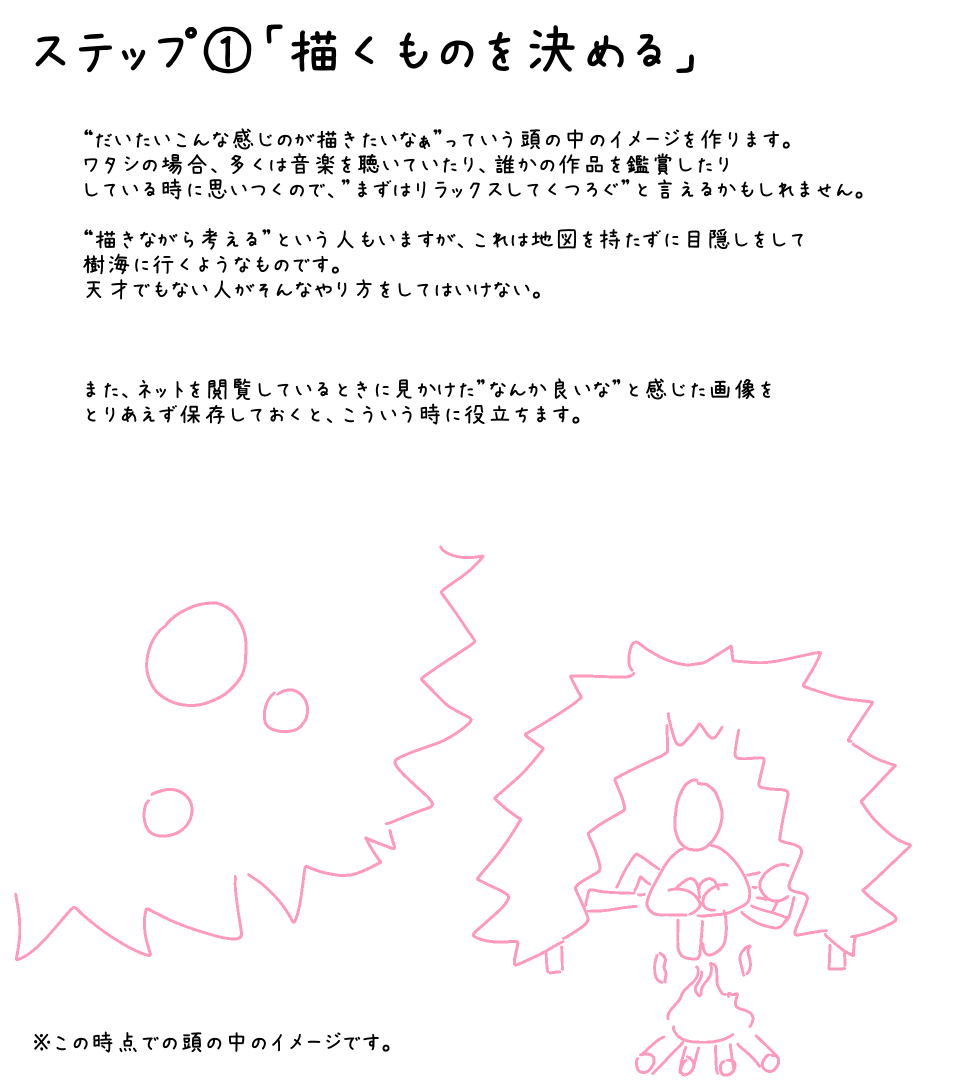 ステップ①「描くものを決める」
“だいたいこんな感じのが描きたいなぁ”っていう頭の中のイメージを作ります。
ワタシの場合、多くは音楽を聴いていたり、誰かの作品を鑑賞したり
している時に思いつくので、”まずはリラックスしてくつろぐ”と言えるかもしれません。
“描きながら考える”という人もいますが、これは地図を持たずに目隠しをして
樹海に行くようなものです。
天才でもない人がそんなやり方をしてはいけない。
また、ネットを閲覧しているときに見かけた”なんか良いな”と感じた画像を
とりあえず保存しておくと、こういう時に役立ちます。
※この時点での頭の中のイメージです。